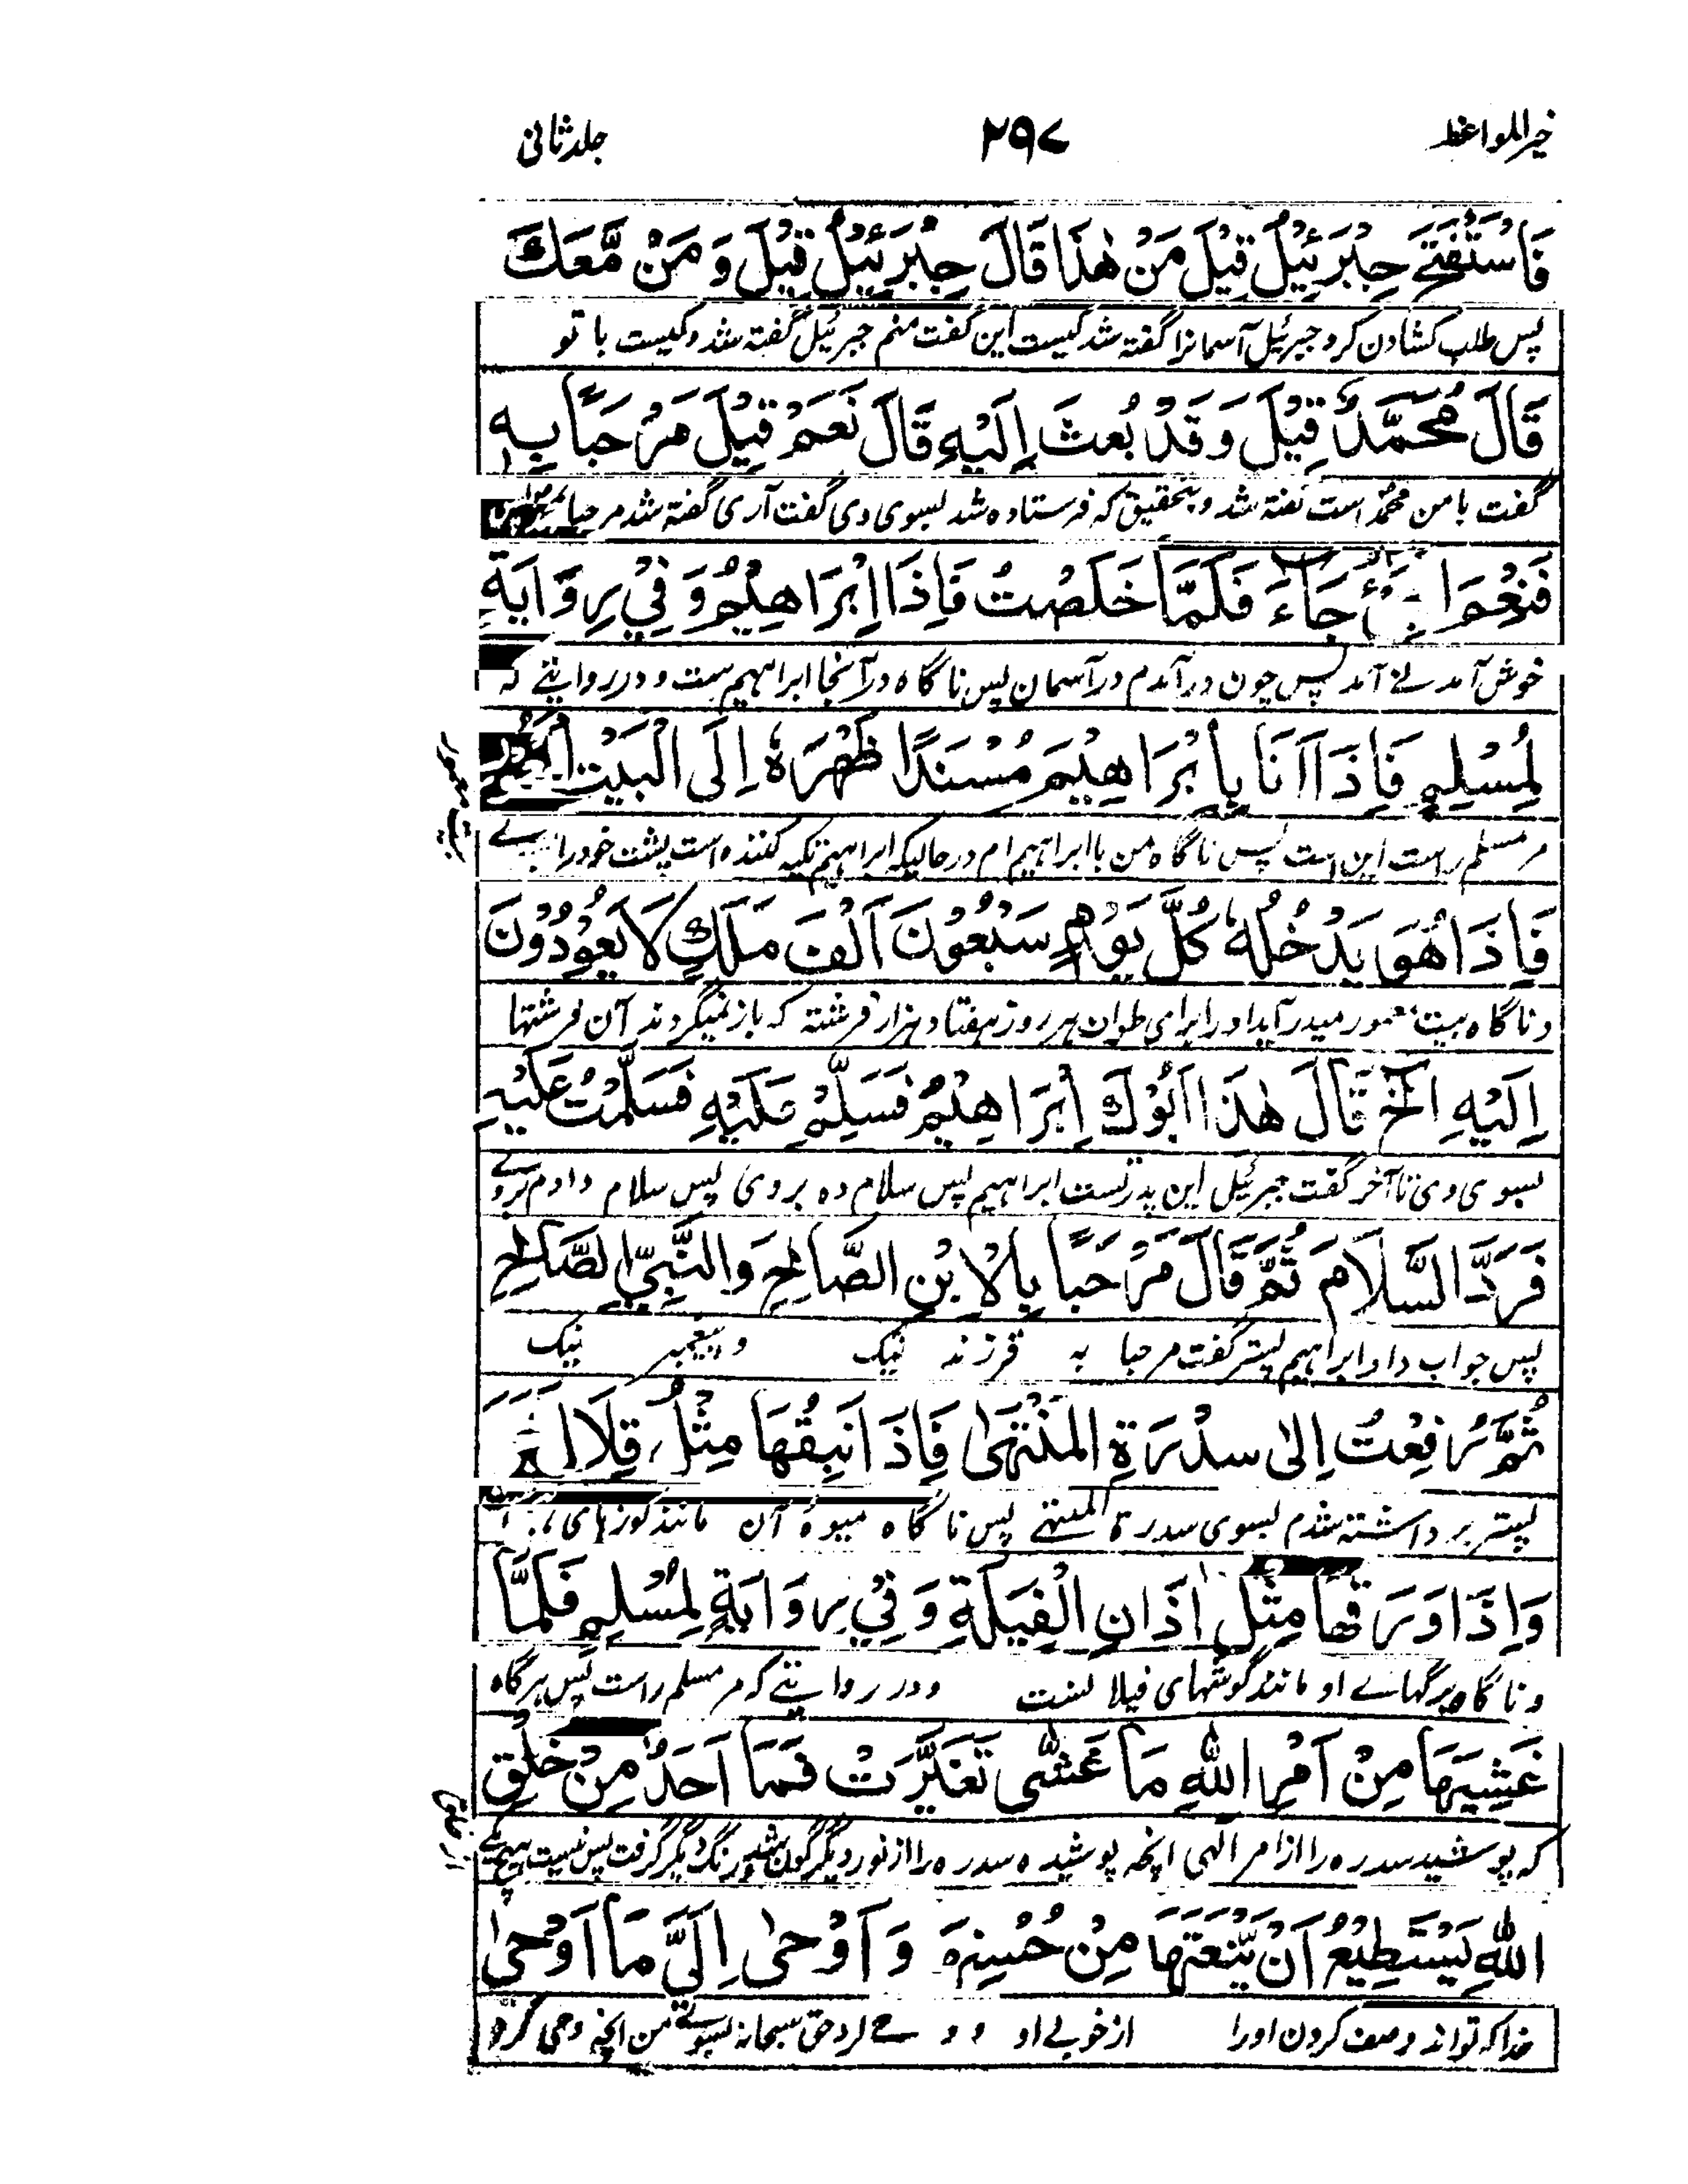 خیر المواعظ ۲۹۷ جلد ثانی
فَاسْتَفْتَحَ جِبْرَئِيْلُ قِيْلَ مَنْ هٰذَا قَالَ جِبْرَئِيْلُ قِيْلَ وَ مَنْ مَّعَكَ
پس طلب کشادن کرد جبرئیل آسمانرا گفته شد کیست این گفت منم جبرئیل گفته شد و کیست با تو
قَالَ مُحَمَّدٌ قِيْلَ وَقَدْ بُعِثَ اِلَيْهِ قَالَ نَعَمْ قِيْلَ مَرْحَبًا بِهٖ
گفت با من محمد است گفته شد و بتحقیق که فرستاده شد بسوی وی گفت آری گفته شد مرحبا
فَنِعْمَ جَاءَ فَلَمَّا خَلَصْتُ فَاِذَا اِبْرَاهِيْمُ وَفِيْ رِوَايَةٍ
خوش آمدنے آمد پس چون درآمدم در آسمان پس ناگاه در آنجا ابراهیم ست و در روایتے که
لِمُسْلِمٍ فَاِذَا اَنَا بِاِبْرَاهِيْمَ مُسْنَدًا ظَهْرَهٗ اِلَى الْبَيْتِ
بیت معمور
مر مسلم راست این است پس ناگاه من با ابراهیم ام در حالیکه ابراهیم تکیه کننده است پشت خود را
فَاِذَا هُوَ يَدْخُلُهٗ كُلَّ يَوْمٍ سَبْعُوْنَ اَلْفَ مَلَكٍ لَا يَعُوْدُوْنَ
و ناگاه بیت معمور میدرآید اورا برای طواف هر روز هفتاد هزار فرشته که باز نمیگردند آن فرشتها
اِلَيْهِ الخ قَالَ هٰذَا اَبُوْكَ اِبْرَاهِيْمُ فَسَلِّمْ عَلَيْهِ فَسَلَّمْتُ عَلَيْهِ
بسوی وی تا آخر گفت جبرئیل این پدر تست ابراهیم پس سلام ده بروی پس سلام دادم بروے
فَرَدَّ السَّلَامَ ثُمَّ قَالَ مَرْحَبًا بِالْاِبْنِ الصَّالِحِ وَالنَّبِيِّ الصَّالِحِ
پس جواب داد ابراهیم پستر گفت مرحبا به فرزند نیک و پیغمبر نیک
ثُمَّ رُفِعْتُ اِلٰى سِدْرَةِ الْمُنْتَهٰى فَاِذَا نَبِقُهَا مِثْلُ قِلَالِ
پستر برداشته شدم بسوی سدرة المنتهے پس ناگاه میوهٔ آن مانند کوزهای
وَاِذَا وَرَقُهَا مِثْلُ اٰذَانِ الْفِيَلَةِ وَفِيْ رِوَايَةٍ لِمُسْلِمٍ فَلَمَّا
و ناگاه برگهاے او مانند گوشهای فیلانست و در روایتے که مر مسلم راست پس هرگاه
غَشِيَهَا مِنْ اَمْرِ اللّٰهِ مَا غَشٰى تَغَيَّرَتْ فَمَا اَحَدٌ مِنْ خَلْقِ
که پوشید سدره را از امر الهی آنچه پوشیده سدره را از نور دیگرگون شد و رنگ دیگر گرفت پس نیست هیچ یکے
از خلق
اللّٰهِ يَسْتَطِيْعُ اَنْ يَّنْعَتَهَا مِنْ حُسْنِهَ وَاَوْحٰى اِلَيَّ مَا اَوْحٰى
خدا که تواند وصف کردن اورا از خوبے او حق سبحانه بسوے من آنچه وحی کرد